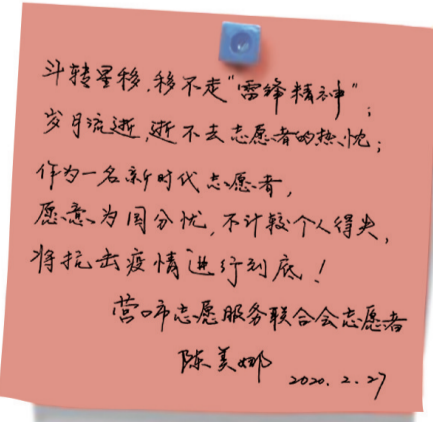 斗转星移,移不走“雷锋精神”;
岁月流逝,逝不去志愿者的热忱;
作为一名新时代志愿者,
愿意为国分忧,不计较个人得失,
将抗击疫情进行到底!
营口市志愿服务联合会志愿者
陈美娜
2020.2.27